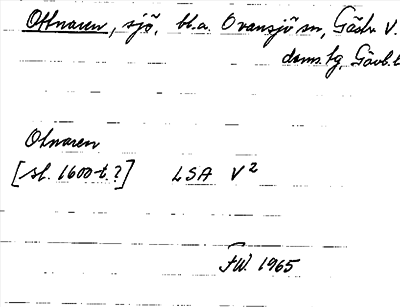 Ottnaren, sjö, bl.a. Ovansjö sn, Gästr. V.
doms.lg, Gävl. l
Otnaren
[sl. 1600-t.?] LSA V²
FW. 1965